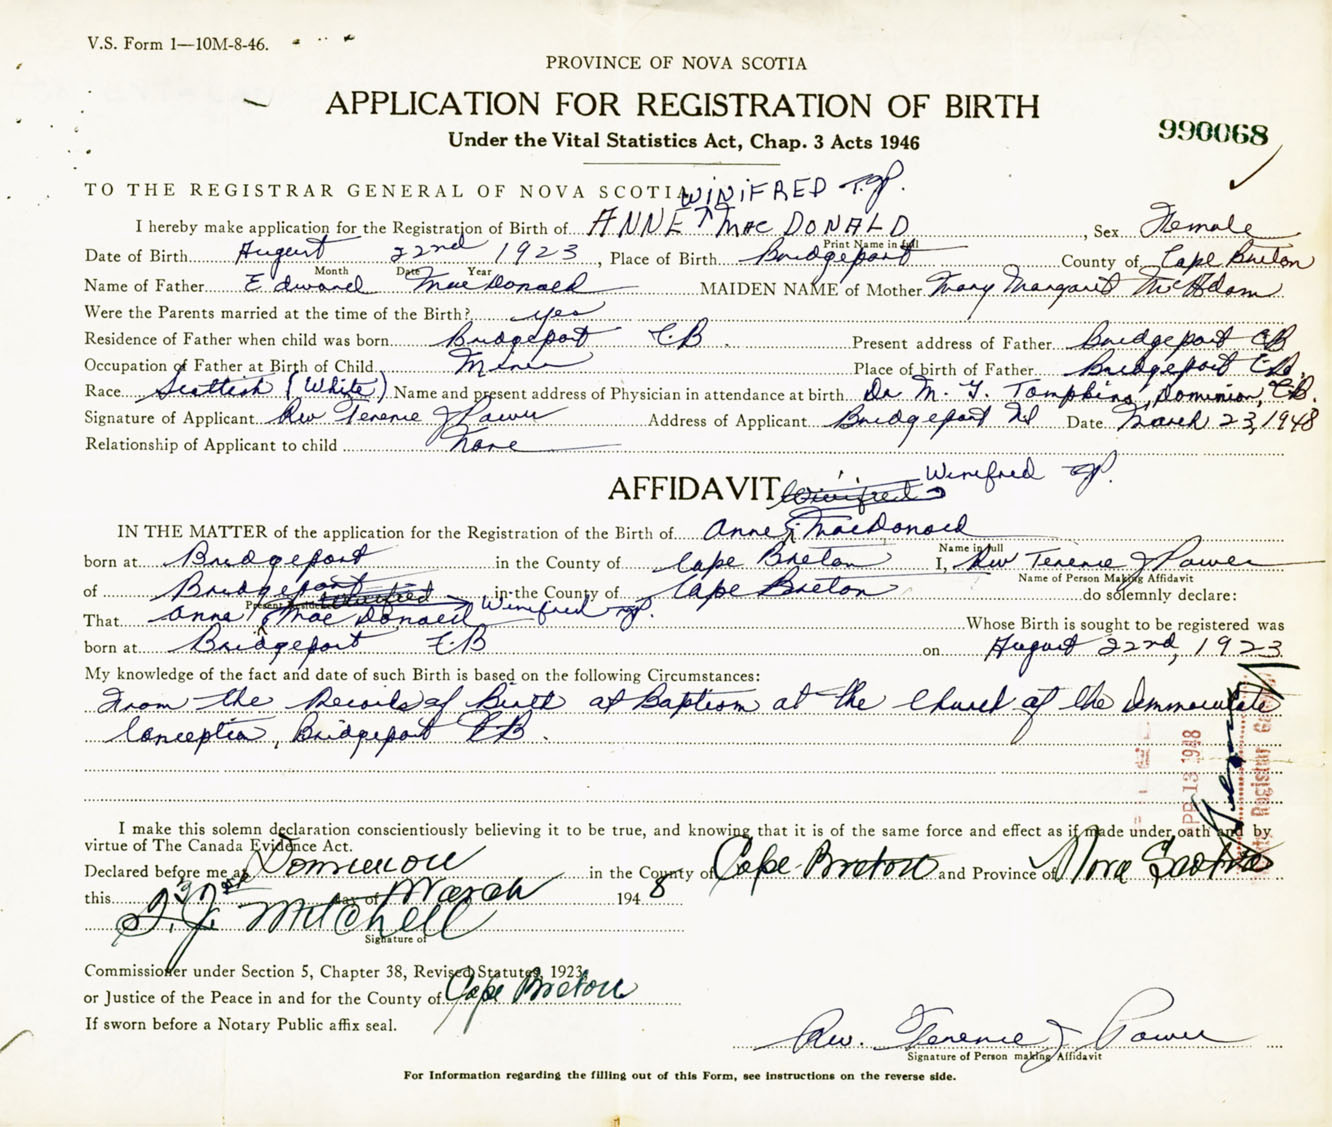 V.S. Form 1—10M-8-46.
PROVINCE OF NOVA SCOTIA
APPLICATION FOR REGISTRATION OF BIRTH
Under the Vital Statistics Act, Chap. 3 Acts 1946
990068
TO THE REGISTRAR GENERAL OF NOVA SCOTIA
WINIFRED T.J.P.
I hereby make application for the Registration of Birth of ANNE MacDONALD, Sex Female
Print Name in full
Date of Birth August 22nd 1923, Place of Birth Bridgeport County of Cape Breton
Month Date Year
Name of Father Edward MacDonald MAIDEN NAME of Mother Mary Margaret McAdam
Were the Parents married at the time of the Birth? yes
Residence of Father when child was born Bridgeport C.B. Present address of Father Bridgeport CB
Occupation of Father at Birth of Child Miner Place of birth of Father Bridgeport C.B.
Race Scottish (White) Name and present address of Physician in attendance at birth Dr. M. J. Tompkins, Dominion, C.B.
Signature of Applicant Rev Terence J Power Address of Applicant Bridgeport NS Date March 23, 1948
Relationship of Applicant to child None
AFFIDAVIT Winifred Winifred
IN THE MATTER of the application for the Registration of the Birth of Anne MacDonald
Name in full
born at Bridgeport in the County of Cape Breton I, Rev Terence J Power
Name of Person Making Affidavit
of Bridgeport in the County of Cape Breton do solemnly declare:
Present Residence Winifred Winifred
That Anne MacDonald Whose Birth is sought to be registered was
born at Bridgeport C.B on August 22nd, 1923
My knowledge of the fact and date of such Birth is based on the following Circumstances:
From the Records of Birth at Baptism at the Church of the Immaculate
Conception, Bridgeport CB.
APR 13 1948
I make this solemn declaration conscientiously believing it to be true, and knowing that it is of the same force and effect as if made under oath and by
virtue of The Canada Evidence Act.
Declared before me at Dominion in the County of Cape Breton and Province of Nova Scotia
this day of March 1948
J. J. Mitchell
Signature of
Commissioner under Section 5, Chapter 38, Revised Statutes, 1923
or Justice of the Peace in and for the County of Cape Breton
If sworn before a Notary Public affix seal.
Rev. Terence J Power
Signature of Person making Affidavit
For Information regarding the filling out of this Form, see instructions on the reverse side.